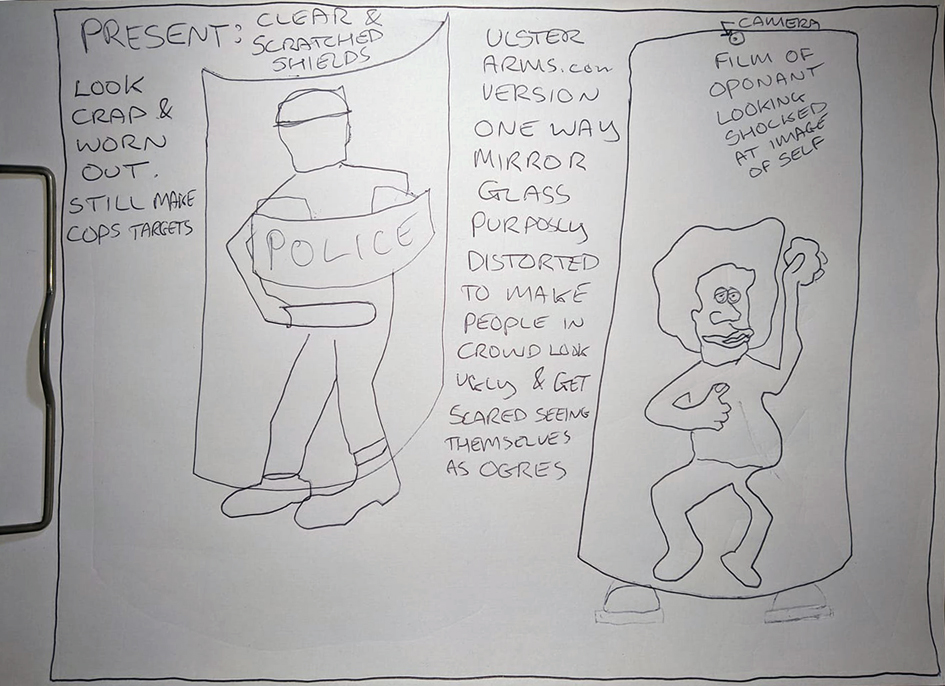 PRESENT:
CLEAR &
SCRATCHED
SHIELDS
LOOK
CRAP &
WORN
OUT.
STILL MAKE
COPS TARGETS
POLICE
ULSTER
ARMS.COM
VERSION
ONE WAY
MIRROR
GLASS
PURPOSLY
DISTORTED
TO MAKE
PEOPLE IN
CROWD LOOK
UGLY & GET
SCARED SEEING
THEMSELVES
AS OGRES
CAMERA
FILM OF
OPONANT
LOOKING
SHOCKED
AT IMAGE
OF SELF